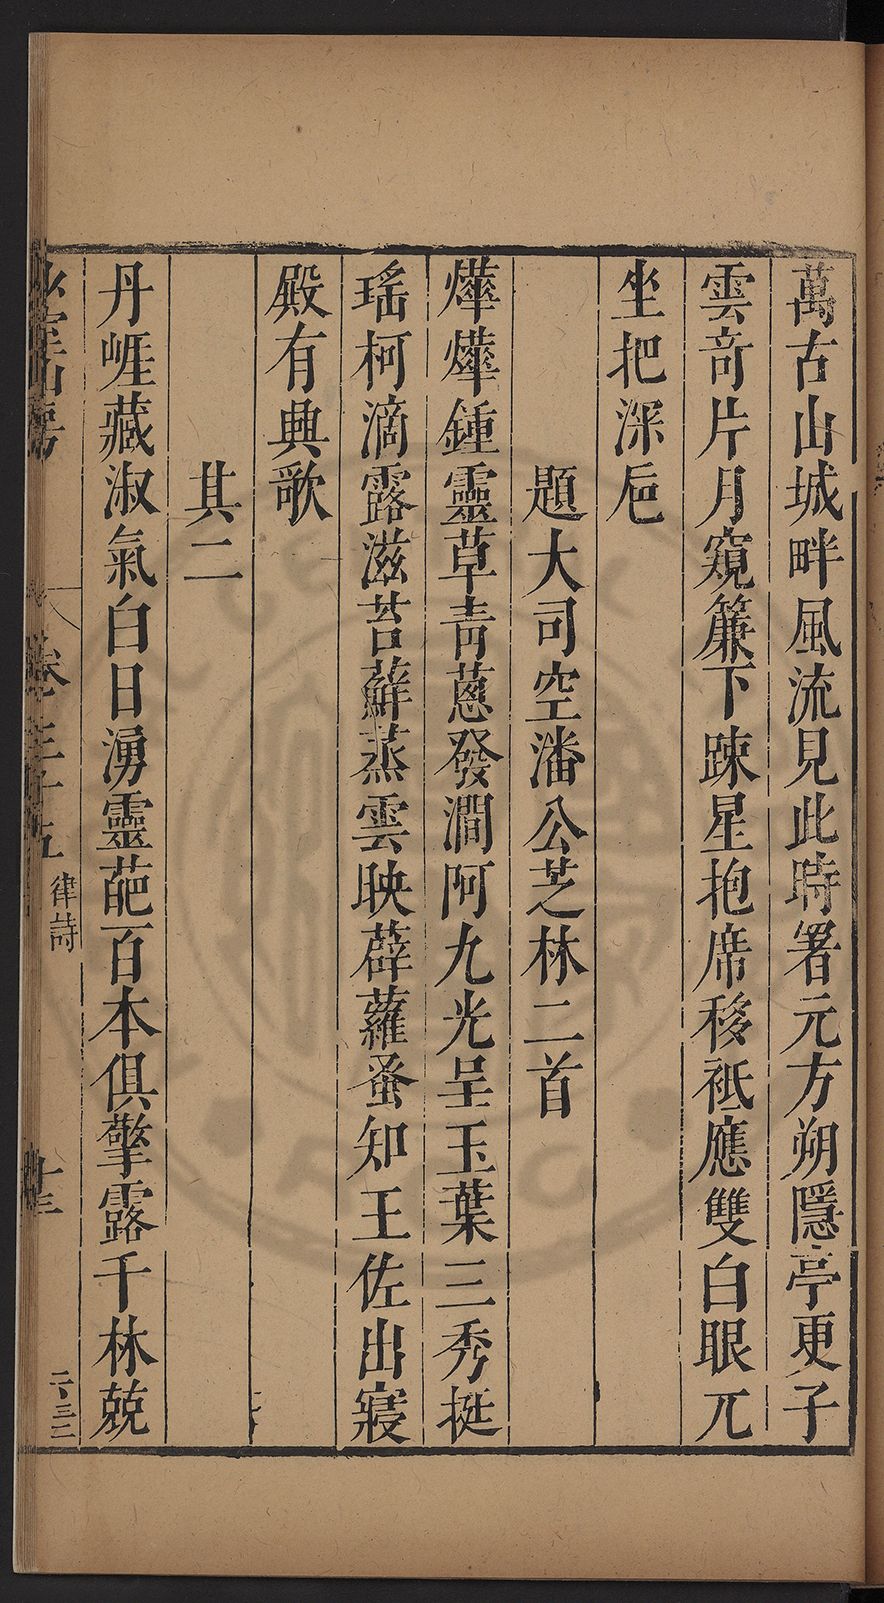 萬古山城畔風流見此時署元方朔隱亭更子
雲奇片月窺簾下踈星抱席移祗應雙白眼兀
坐把深巵
題大司空潘公芝林二首
燁燁鍾靈草青蔥發澗阿九光呈玉葉三秀挺
瑤柯滴露滋苔蘚蒸雲映薜蘿蚤知王佐出寢
殿有典歌
其二
丹崕藏淑氣白日湧靈葩百本俱擎露千林兢
卷三十五
律詩